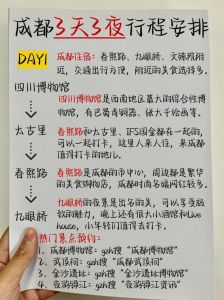 成都3天3夜行程安排
DAY1
成都住宿：春熙路、九眼桥、文殊院附
近，交通出行方便，附近的美食选择多。
四川博物馆
四川博物馆是西南地区最大的综合性博
物馆，有画像砖、张大千绘画等。
太古里
春熙路和太古里、IFS国金都在一起的，
可以一起打卡，这里人来人往，来成都
值得打卡的地儿。
春熙路
春熙路是成都的市中心，周边都是繁华
的美食购物店，成都时尚与暖网红较多。
九眼桥
九眼桥的夜景是出名的美，可以享受酸
软的魅力，晚上还有很大小酒馆和Live
house，小年轻们值得去打卡。
热门景点预约：
1、成都博物馆：gzh搜"成都博物馆"
2、武侯祠：gzh搜"成都武侯祠"
3、金沙遗址：gzh搜"金沙遗址博物馆"
4、夜游锦江：gzh搜"夜游锦江资讯"